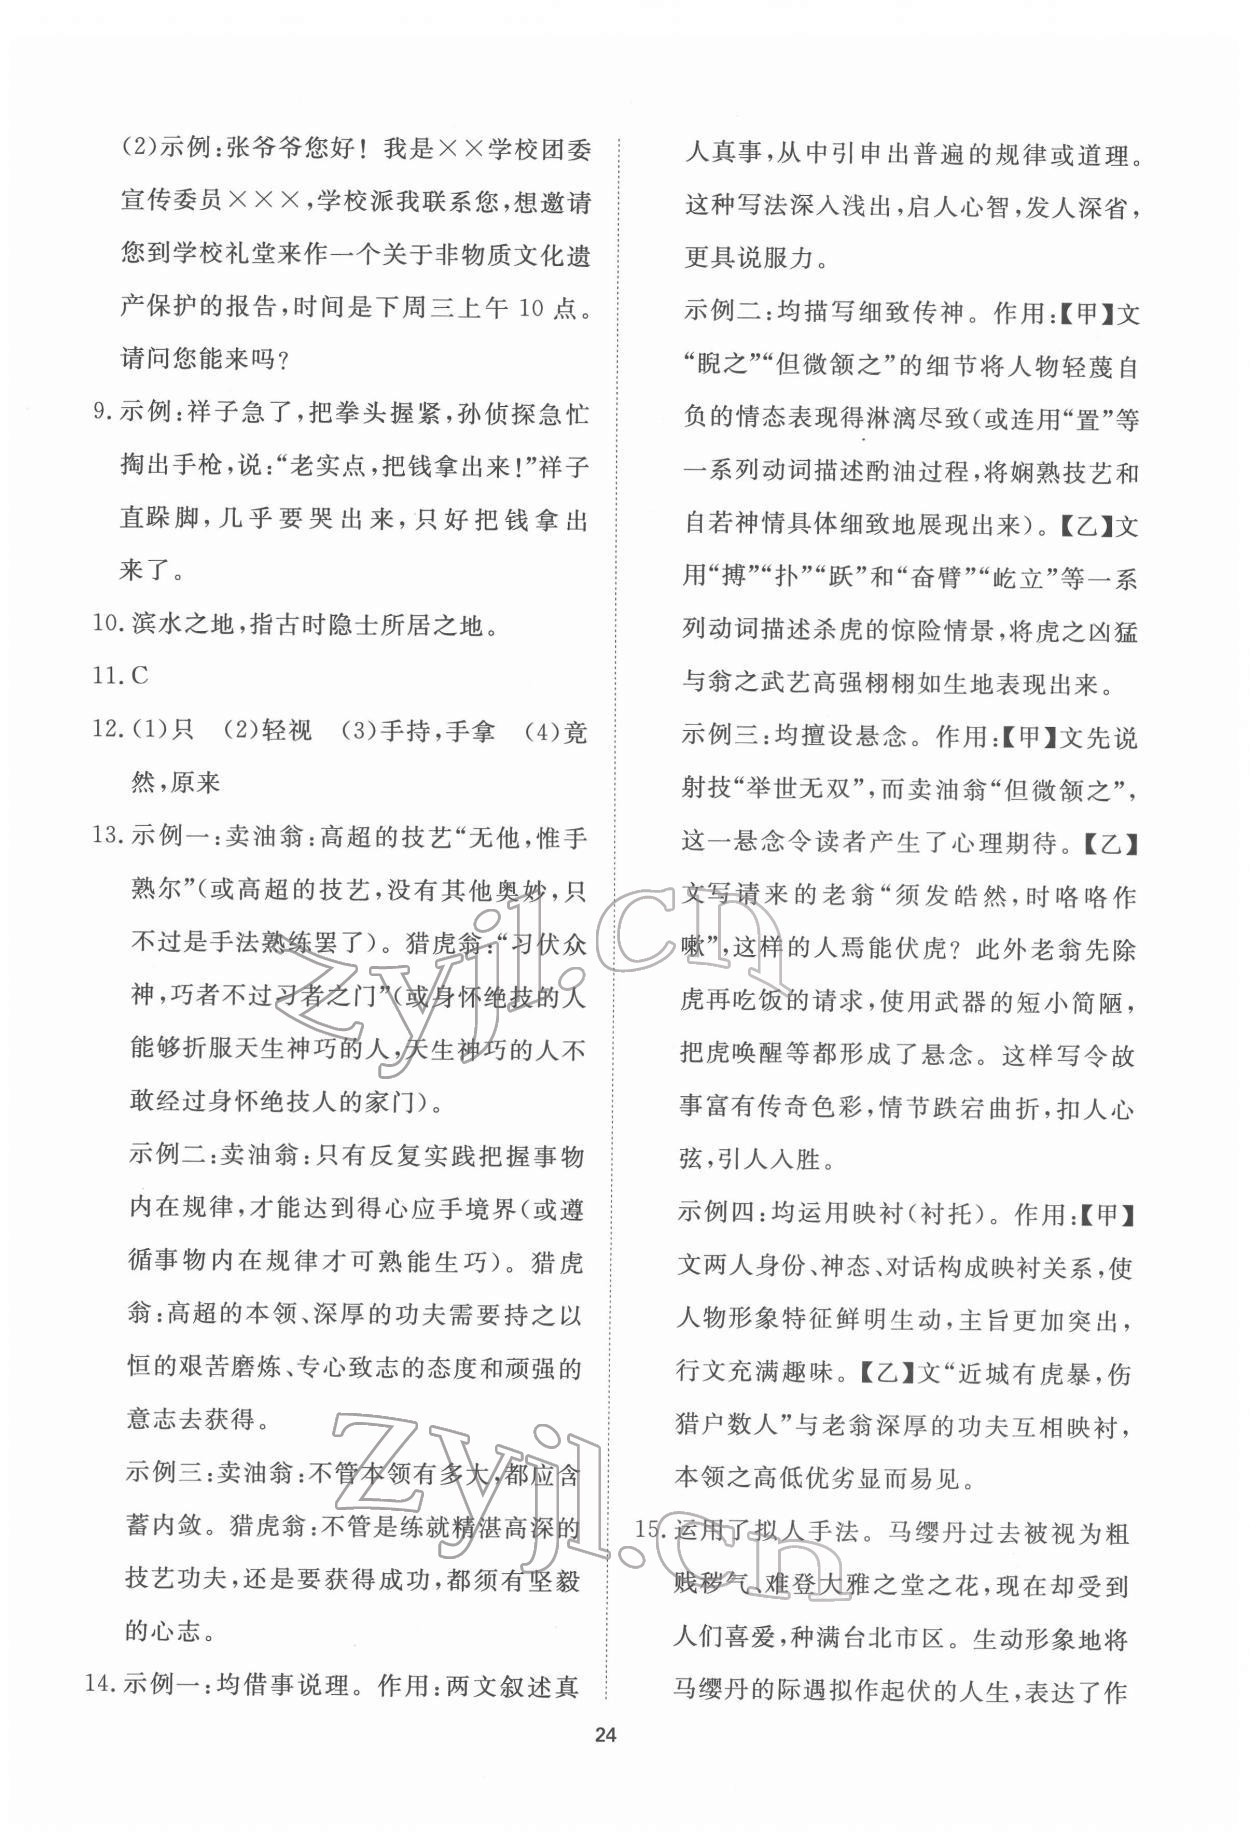 (2)示例:张爷爷您好！我是××学校团委
宣传委员×××,学校派我联系您,想邀请
您到学校礼堂来作一个关于非物质文化遗
产保护的报告,时间是下周三上午 10 点。
请问您能来吗?
9. 示例:祥子急了,把拳头握紧,孙侦探急忙
掏出手枪,说:“老实点,把钱拿出来!”祥子
直跺脚,几乎要哭出来,只好把钱拿出
来了。
10. 滨水之地,指古时隐士所居之地。
11. C
12. (1)只 (2)轻视 (3)手持,手拿 (4)竟
然,原来
13. 示例一:卖油翁:高超的技艺“无他,惟手
熟尔”(或高超的技艺,没有其他奥妙,只
不过是手法熟练罢了)。猎虎翁:“习伏众
神,巧者不过习者之门”(或身怀绝技的人
能够折服天生神巧的人,天生神巧的人不
敢经过身怀绝技人的家门)。
示例二:卖油翁:只有反复实践把握事物
内在规律,才能达到得心应手境界(或遵
循事物内在规律才可熟能生巧)。猎虎
翁:高超的本领、深厚的功夫需要持之以
恒的艰苦磨炼、专心致志的态度和顽强的
意志去获得。
示例三:卖油翁:不管本领有多大,都应含
蓄内敛。猎虎翁:不管是练就精湛高深的
技艺功夫,还是要获得成功,都须有坚毅
的心志。
14. 示例一:均借事说理。作用:两文叙述真
人真事,从中引申出普遍的规律或道理。
这种写法深入浅出,启人心智,发人深省,
更具说服力。
示例二:均描写细致传神。作用:【甲】文
“睨之”“但微颔之”的细节将人物轻蔑自
负的情态表现得淋漓尽致(或连用“置”等
一系列动词描述酌油过程,将娴熟技艺和
自若神情具体细致地展现出来)。【乙】文
用“搏”“扑”“跃”和“奋臂”“屹立”等一系
列动词描述杀虎的惊险情景,将虎之凶猛
与翁之武艺高强栩栩如生地表现出来。
示例三:均擅设悬念。作用:【甲】文先说
射技“举世无双”,而卖油翁“但微颔之”,
这一悬念令读者产生了心理期待。【乙】
文写请来的老翁“须发皓然,时咯咯作
嗽”,这样的人焉能伏虎? 此外老翁先除
虎再吃饭的请求,使用武器的短小简陋,
把虎唤醒等都形成了悬念。这样写令故
事富有传奇色彩,情节跌宕曲折,扣人心
弦,引人入胜。
示例四:均运用映衬(衬托)。作用:【甲】
文两人身份、神态、对话构成映衬关系,使
人物形象特征鲜明生动,主旨更加突出,
行文充满趣味。【乙】文“近城有虎暴,伤
猎户数人”与老翁深厚的功夫互相映衬,
本领之高低优劣显而易见。
15. 运用了拟人手法。马缨丹过去被视为粗
贱秽气、难登大雅之堂之花,现在却受到
人们喜爱,种满台北市区。生动形象地将
马缨丹的际遇拟作起伏的人生,表达了作
24
zyjl.cn
zyjl.cn